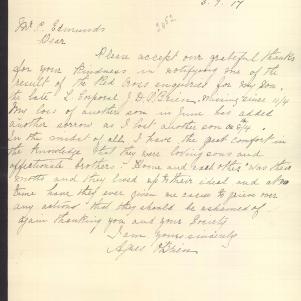 5.9.17
2652
Mr C. Edmunds
Dear
Please accept our grateful thanks
for your kindness in notifying one of the
result of the Red Cross enquiries for my Son,
the late L. Corporal J. D. O'Brien, Missing since 11/4
My loss of another son in June has added
another sorrow as I lost another son on 8/6/17.
In the midst of all I have the great comfort in
the knowledge that they were loving sons and
affectionate brothers. "Home and each other" was their
motto and they lived up to their ideal and at no
time have they ever given me cause to grieve over
any actions that they should be ashamed of
again thanking you and your Society
I am yours sincerely
Agnes O'Brien